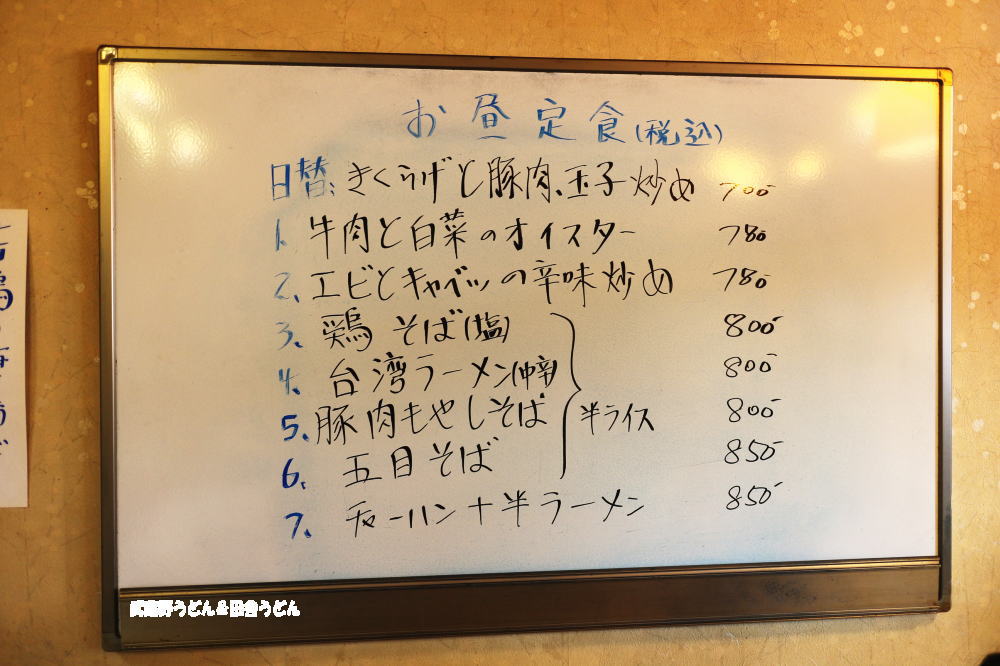 お昼定食(税込)
日替:きくらげと豚肉、玉子炒め 700
1. 牛肉と白菜のオイスター 780
2、エビとキャベツの辛味炒め 780
3、鶏そば(塩) 800
4、台湾ラーメン(中辛) 800
5、豚肉もやしそば 半ライス 800
6、五目そば 850
7、チャーハン+半ラーメン 850
武蔵野うどん&田舎うどん